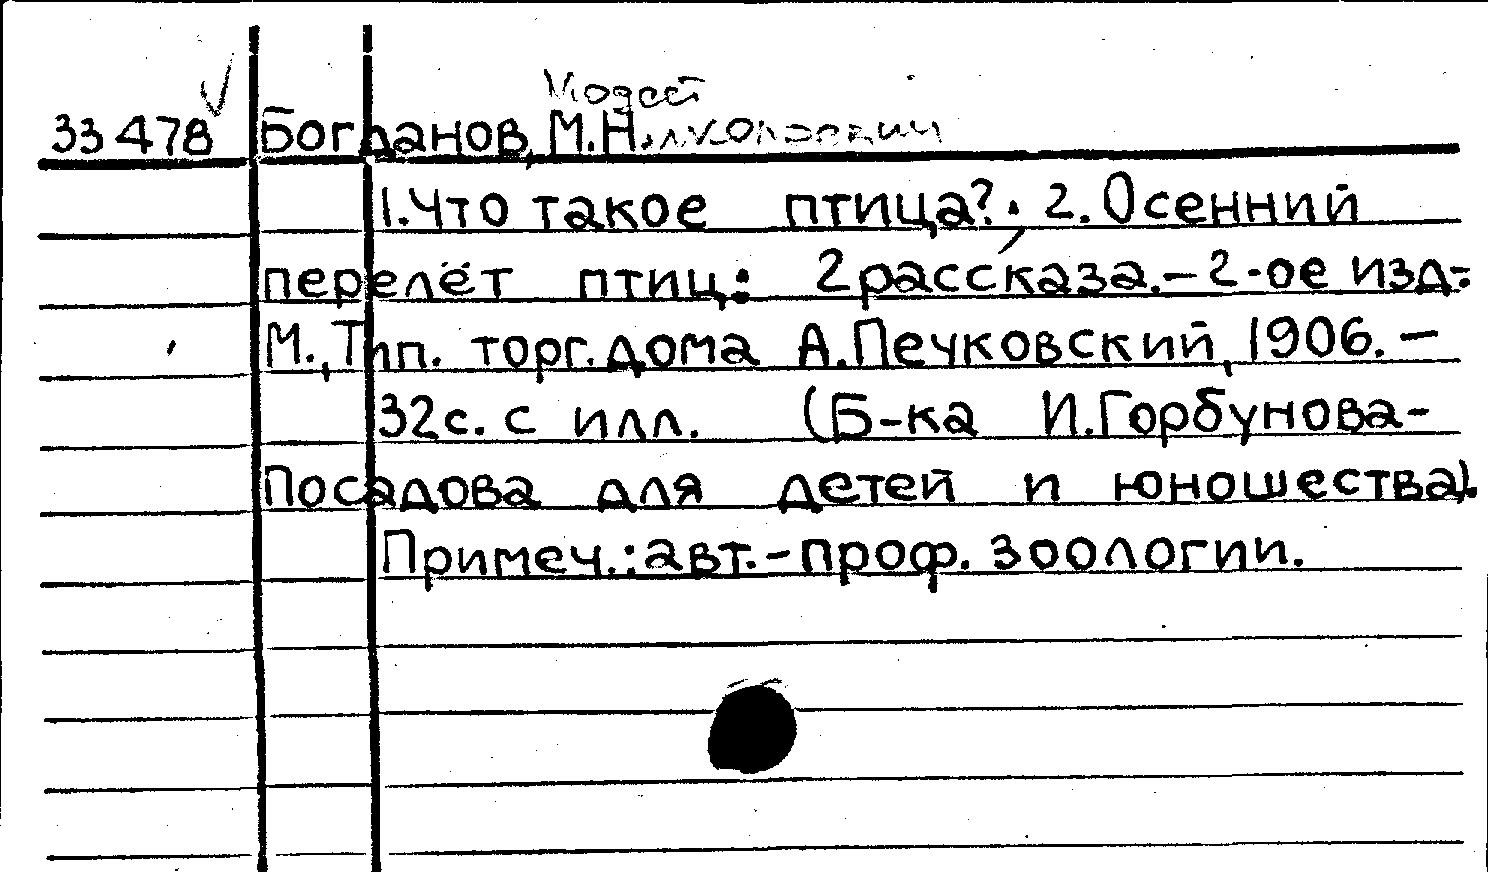 Модест
33478 Богданов, М.Н. николаевич
1.Что такое птица?. 2.Осенний
перелёт птиц: 2 рассказа.-2-ое изд.-
М., Тип. торг.дома А.Печковский, 1906.-
32с. с илл. (Б-ка И.Горбунова-
Посадова для детей и юношества).
Примеч.: авт.-проф. зоологии.